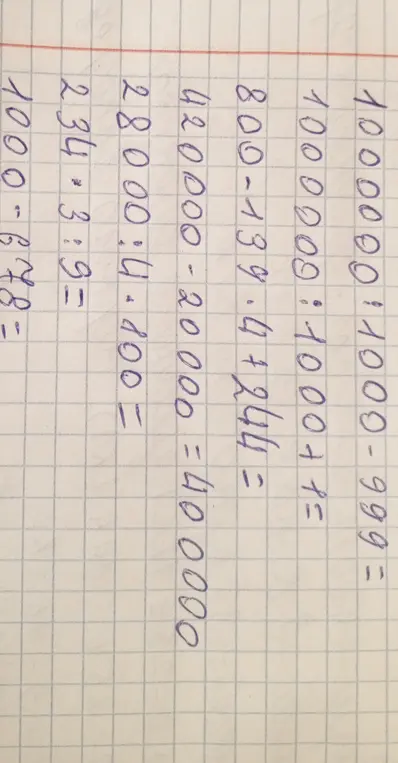 1000000:1000-999=
1000000:1000+1=
800-139·4+244=
420000-20000=400000
28000:4·100=
234·3:9=
1000-678=